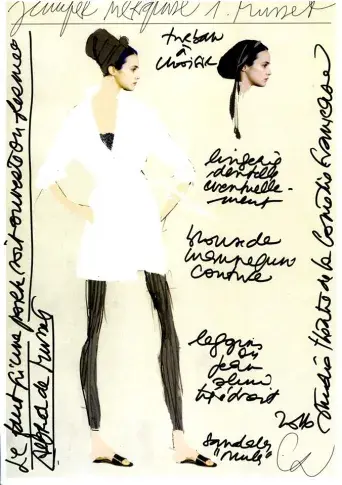 turban
à
choisir
lingerie
dentelle
éventuelle-
ment
blouse de
mannequin
comme
leggins
ou
jean
slim
très droit
sandales
"mules"
Il faut qu'une porte soit ouverte ou fermée
Alfred de Musset
Studio Théâtre de la Comédie Française